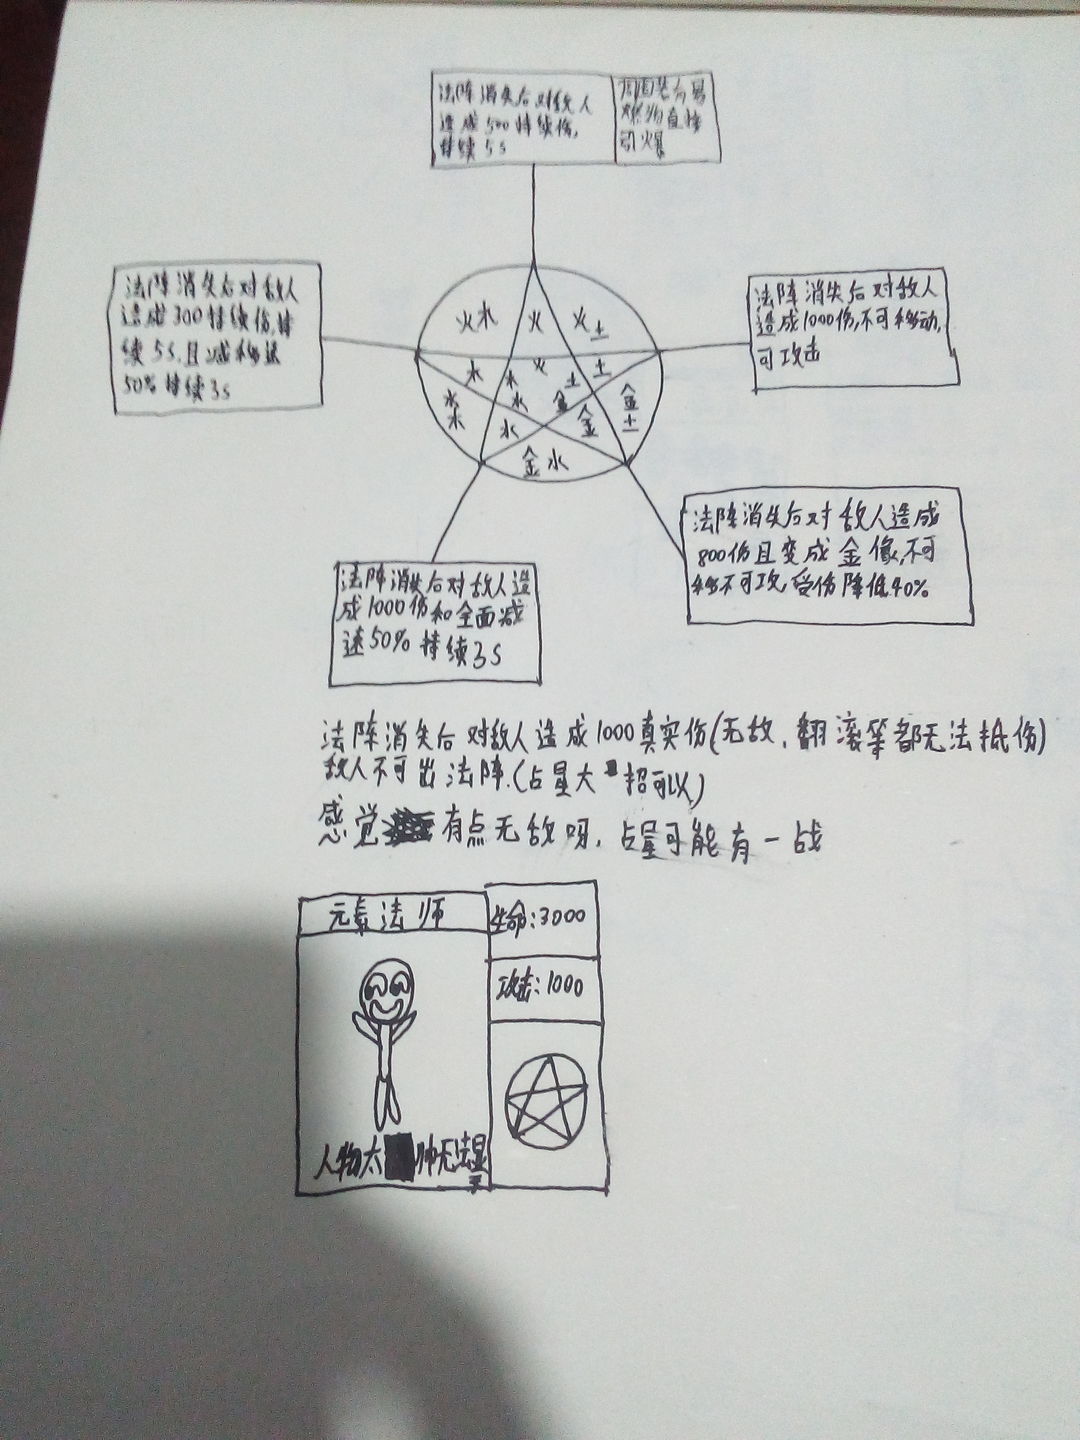 法阵消失后对敌人
造成500持续伤,
持续5s
周围若有易
燃物直接
引爆
法阵消失后对敌人
造成300持续伤,持
续5s,且减移速
50%持续3s
法阵消失后对敌人
造成1000伤,不可移动,
可攻击
火木
火
火土
木
木
火
土
土
木
水
水
金
金
金
土
水
金水
法阵消失后对敌人造成
800伤且变成金像,不可
移不可攻,受伤降低40%
法阵消失后对敌人造
成1000伤和全面减
速50%持续3s
法阵消失后对敌人造成1000真实伤(无敌、翻滚等都无法抵伤)
敌人不可出法阵.(占量大招可以)
感觉有点无敌呀,占量可能有一战
元素法师
生命:3000
攻击:1000
人物太帅无法显
示